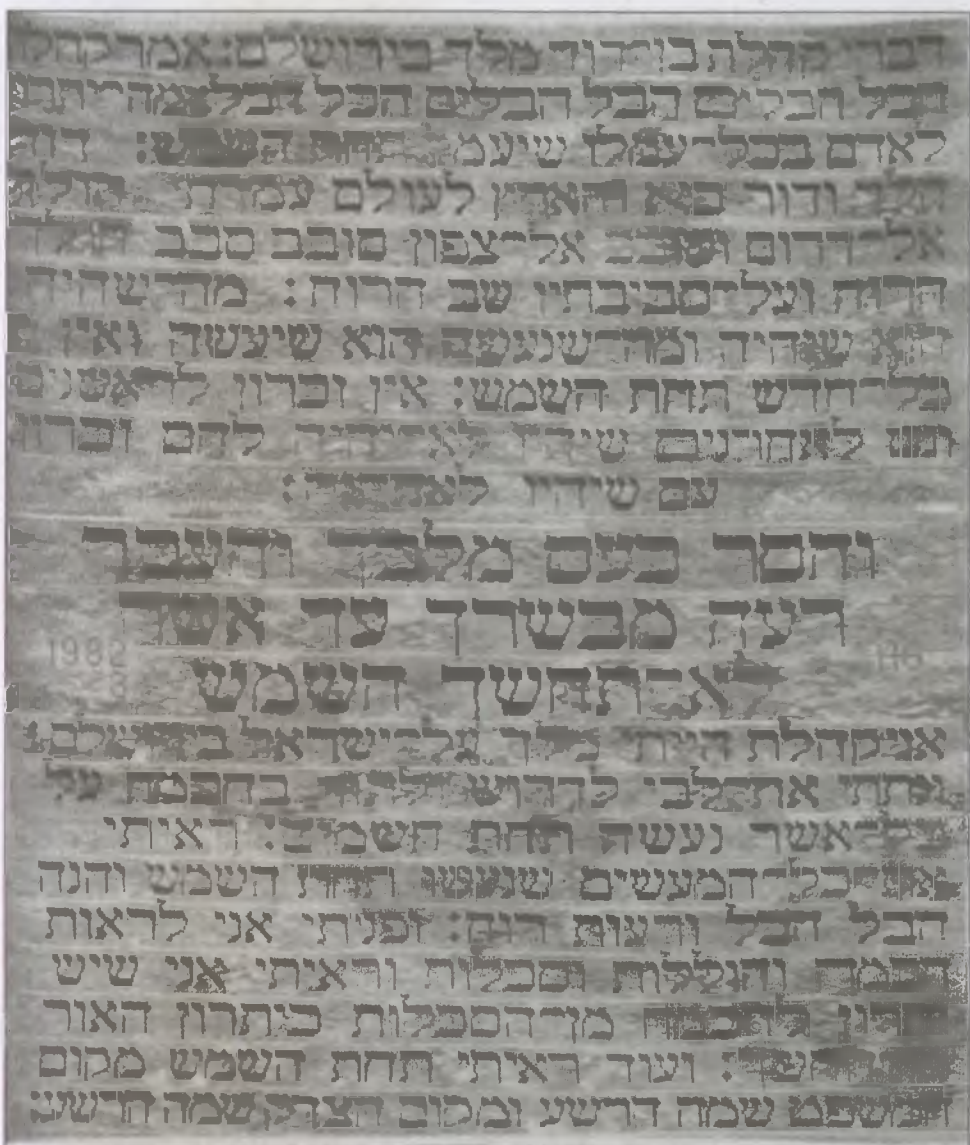 דברי קהלת בן דוד מלך בירושלם: אמר קהלת
הבל הבלים הבל הבלים הכל הבל: מה יתרון
לאדם בכל־עמלו שיעמל תחת השמש: דור
הלך ודור בא והארץ לעולם עמדת הולך
אל־דרום וסובב אל־צפון סובב סבב הולך
הרוח ועל־סביבתיו שב הרוח: מה־שהיה
הוא שיהיה ומה־שנעשה הוא שיעשה ואין
כל־חדש תחת השמש: אין זכרון לראשנים
וגם לאחרנים שיהיו לא־יהיה להם זכרון
עם שיהיו לאחרנה:
והסר כעס מלבך והעבר
רעה מבשרך עד אשר
לא־תחשך השמש
1982 116
אני קהלת הייתי מלך על־ישראל בירושלם:
ונתתי את־לבי לדרוש ולתור בחכמה על
כל־אשר נעשה תחת השמים: ראיתי
את־כל־המעשים שנעשו תחת השמש והנה
הכל הבל ורעות רוח: ופניתי אני לראות
חכמה והוללות וסכלות וראיתי אני שיש
יתרון לחכמה מן־הסכלות כיתרון האור
ועוד ראיתי תחת השמש מקום
המשפט שמה הרשע ומקום הצדק שמה הרשע: